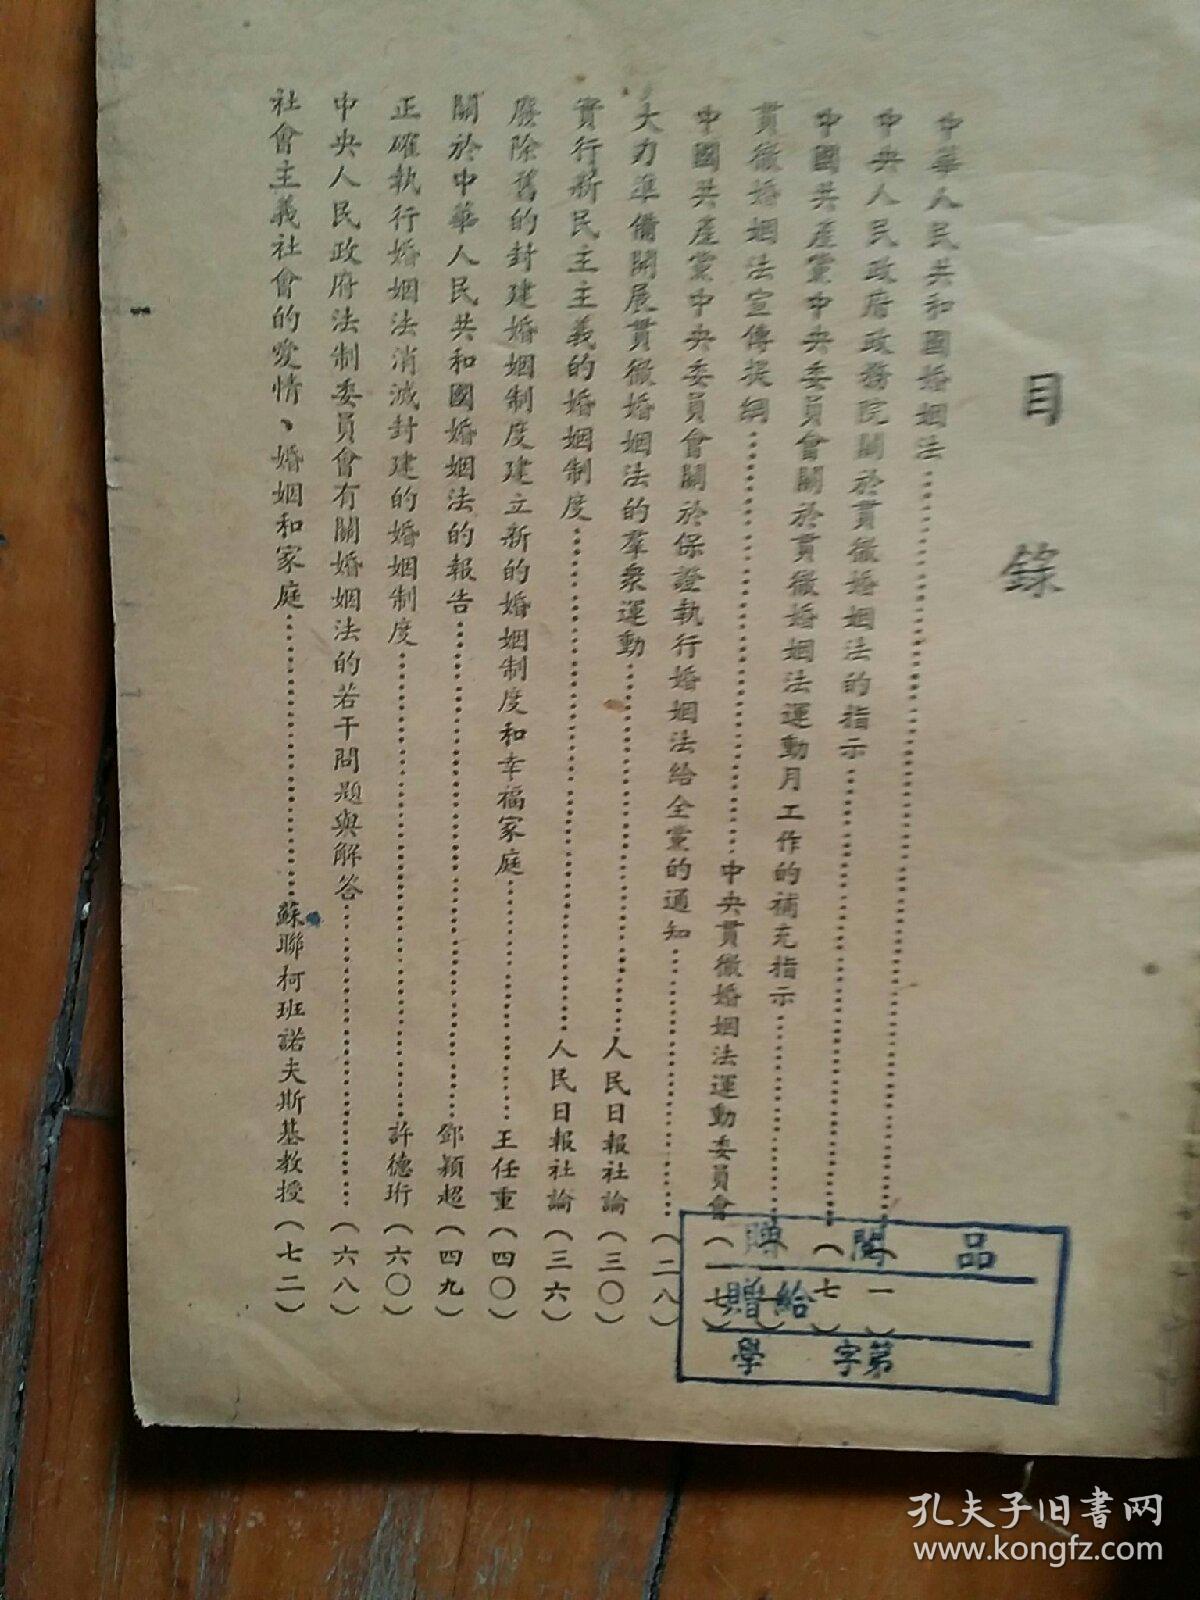 目錄
中華人民共和國婚姻法……(一)
中央人民政府政務院關於貫徹婚姻法的指示……(七)
中國共產黨中央委員會關於貫徹婚姻法運動月工作的補充指示……
貫徹婚姻法宣傳提綱……中央貫徹婚姻法運動委員會(一七)
中國共產黨中央委員會關於保證執行婚姻法給全黨的通知……(二八)
大力準備開展貫徹婚姻法的羣衆運動……人民日報社論(三〇)
實行新民主主義的婚姻制度……人民日報社論(三六)
廢除舊的封建婚姻制度建立新的婚姻制度和幸福家庭……王任重(四〇)
關於中華人民共和國婚姻法的報告……鄧穎超(四九)
正確執行婚姻法消滅封建的婚姻制度……許德珩(六〇)
中央人民政府法制委員會有關婚姻法的若干問題與解答……(六八)
社會主義社會的愛情、婚姻和家庭……蘇聯柯班諾夫斯基教授(七二)
品
給贈
第字 學
孔夫子旧书网
www.kongfz.com